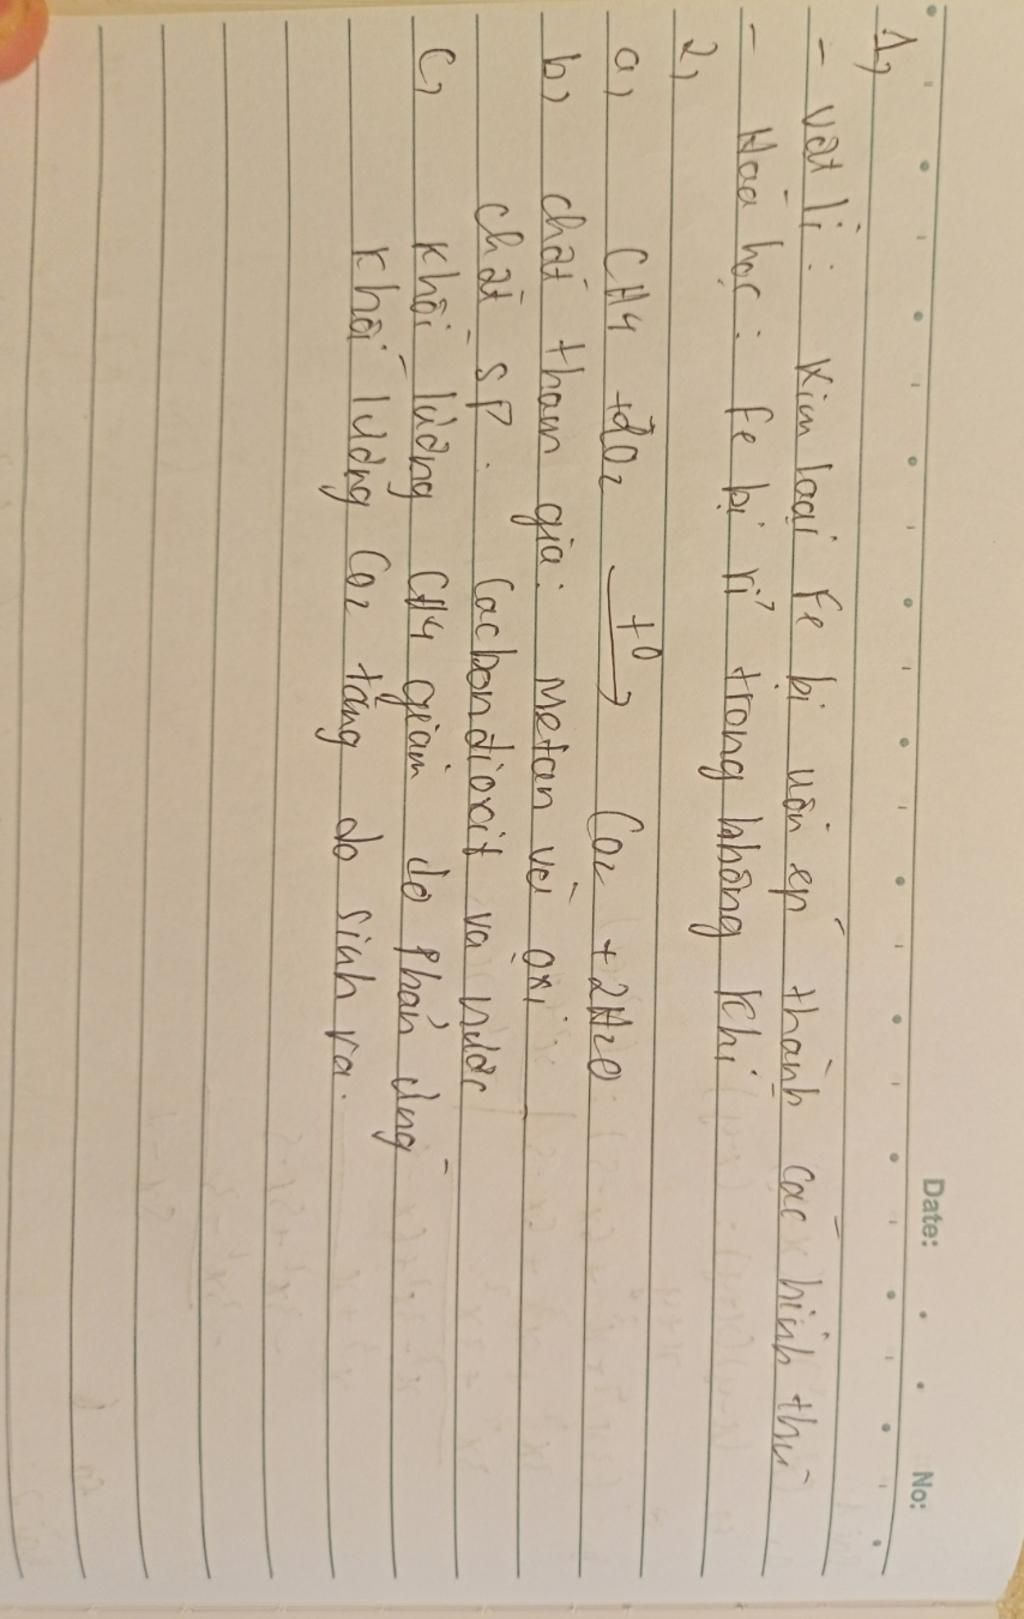 Date: No:
1,
- Vật lí: Kim loại Fe bị uốn ép thành các hình thù
- Hoá học: Fe bị rỉ trong không khí
2,
a, CH4 + 2O2 t0 → CO2 + 2H2O
b, chất tham gia: Metan và oxi
chất sp: Cacbon đioxit và nước
c, Khối lượng CH4 giảm do phản ứng
Khối lượng CO2 tăng do sinh ra.